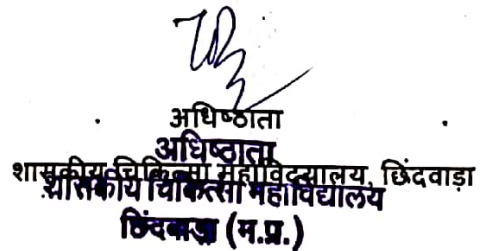 अधिष्ठाता
अधिष्ठाता
शासकीय चिकित्सा महाविद्यालय, छिंदवाड़ा
शासकीय चिकित्सा महाविद्यालय
छिंदवाड़ा (म.प्र.)